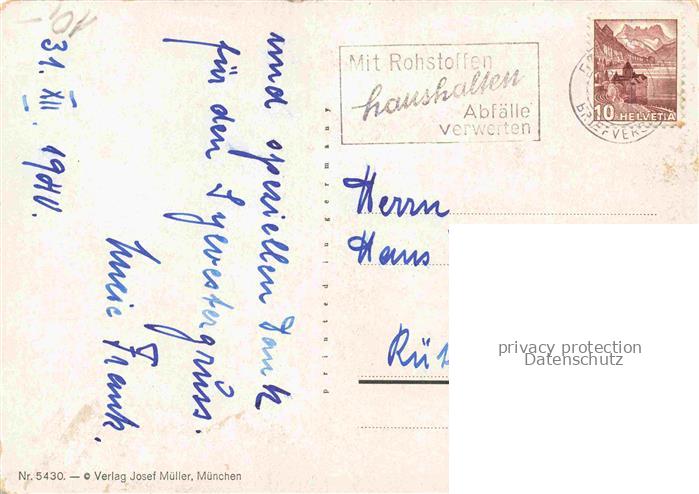 10,-
und speziellen Dank
für den Sylvestergruss.
Frank.
31. XII. 1940.
Mit Rohstoffen
haushalten
Abfälle
verwerten
BRIEFVER
10 HELVETIA
Herrn
Hans
Rüt
privacy protection
Datenschutz
printed in germany
Nr. 5430. — © Verlag Josef Müller, München